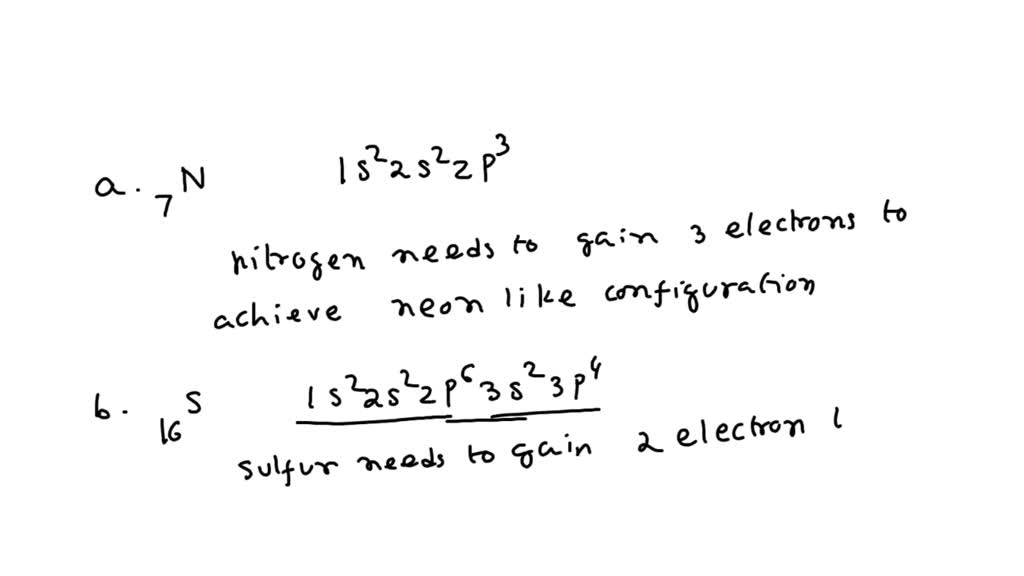 a. ₇N 1s²2s²2p³
nitrogen needs to gain 3 electrons to
achieve neon like configuration
b. ₁₆S 1s²2s²2p⁶3s²3p⁴
sulfur needs to gain 2 electron